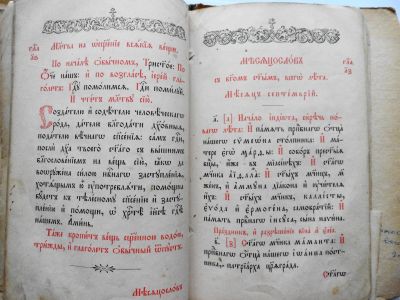 Мл҃тва на ѡсщ҃е́нїе всѧ́кїѧ ве́щи.
По нача́лѣ ѡбы́чномъ, Трист҃о́е: Ѻ҆́
ч҃е на́шъ: и҆ по во́згласѣ, і҆ере́й гла-
го́летъ: Гд҇ꙋ помо́лимсѧ. Гд҇и поми́лꙋй.
И҆ чте́тъ мл҃твꙋ сїю̀.
Созда́телю и҆ содѣ́телю человѣ́ческагѡ
ро́да, да́телю бл҃года́ти дꙋхо́вныѧ,
пода́телю вѣ́чнагѡ сп҃се́нїѧ: са́мъ гд҇и,
послѝ дх҃а твоего̀ ст҃а́го съ вы́шнимъ
бл҃гослове́нїемъ на ве́щь сїю̀, ꙗ҆́кѡ да
воѡрꙋже́на си́лою нбⷭ҇нагѡ застꙋпле́нїѧ,
хотѧ́щымъ ю҆̀ ᲂу҆потреблѧ́ти, помо́щна
бꙋ́детъ къ тѣле́сномꙋ сп҃се́нїю и҆ застꙋ-
пле́нїю и҆ по́мощи, ѡ҆ хрⷭ҇тѣ̀ і҆и҃сѣ гд҇ѣ
на́шемъ. А҆ми́нь.
Та́же кропи́тъ ве́щь сщ҃е́нною водо́ю,
три́жды, и҆ глаго́летъ ѡ҆бы́чный ѿпꙋ́стъ.
Мѣсѧцосло́въ
МѢСѦЦОСЛО́ВЪ
съ бг҃омъ ст҃ы́мъ, всегѡ̀ лѣ́та.
Мѣ́сѧцъ септе́мврїй.
а҃. [а҃] Нача́ло і҆нді́кта, си́рѣчь но́-
вагѡ лѣ́та: И҆ па́мѧть прпⷣбнагѡ ѻ҆тца̀
на́шегѡ сѷмеѡ́на сто́лпника: И҆ ма́-
тере є҆гѡ̀ ма́рѳы: И҆ собо́ръ прест҃ы́ѧ
бцⷣы, и҆́же въ мїасі́нѣхъ: И҆ ст҃а́гѡ
мч҃ника а҆їѳа́ла: И҆ ст҃ы́хъ мч҃ницъ, м҃
же́нъ, и҆ а҆ммꙋ́на дїа́кона и҆ ᲂу҆чи́телѧ
и҆́хъ. И҆ ст҃ы́хъ мч҃никъ, каллі́сты,
є҆во́да и҆ є҆рмоге́на, саморо́дныхъ: И҆
па́мѧть првⷣнагѡ і҆исꙋ́са, сы́на наѵи́на.
Пра́здникъ, и҆ разрѣше́нїе вїна̀ и҆ є҆ле́а.
в҃. [в҃] Ст҃а́гѡ мч҃ника ма́манта: И҆
прпⷣбнагѡ ѻ҆тца̀ на́шегѡ і҆ѡа́нна по́ст-
ника, патрїа́рха цр҃ѧгра́да.
Ст҃а́гѡ